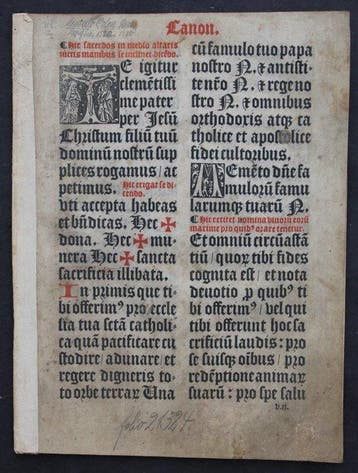 Canon.
Hic sacerdos in medio altaris
iunctis manibus se inclinet dicēdo.
TE igitur
clemētissi
me pater
per Jesū
Christum filiū tuū
dominū nostrū sup
plices rogamus / ac
petimus. Hic erigat se di-
cendo.
vti accepta habeas
et bn̄dicas. Hec ✠
dona. Hec ✠ mu-
nera Hec ✠ sancta
sacrificia illibata.
In primis que ti-
bi offerimꝰ pro eccle
sia tua sctā catholi-
ca quā pacificare cu
stodire / adunare / et
regere digneris to-
to orbe terraꝝ Una
cū famulo tuo papa
nostro N. ⁊ antisti-
te nr̄o N. ⁊ rege no
stro N. ⁊ omnibus
orthodoxis atqꝫ ca
tholice et apostolice
fidei cultoribus.
MEmēto dn̄e fa
mulorū famu
larumqꝫ tuarū N.
Hic recitet nomina viuorū eorū
maxime pro quibꝰ orare tenetur.
Et omniū circūastā
tiū / quoꝝ tibi fides
cognita est / et nota
deuotio ꝓ quibꝰ ti
bi offerimꝰ / vel qui
tibi offerunt hoc sa
crificiū laudis : pro
se suisqꝫ oībus / pro
redēptione animaꝝ
suarū : pro spe salu
folio 21324.